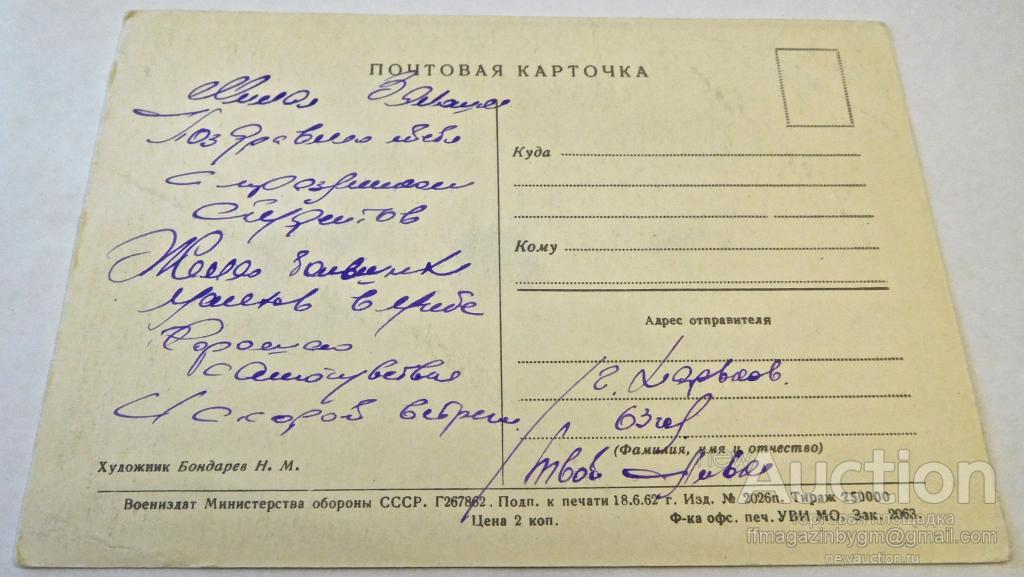 ПОЧТОВАЯ КАРТОЧКА
Милая
Поздравляю тебя
с праздником
студентов
Желаю больших
успехов в учебе
Хорошего
самочувствия
И скорой встречи
Куда
Кому
Адрес отправителя
г. Харьков.
63 г.
(Фамилия, имя и отчество)
твой
Художник Бондарев Н. М.
Воениздат Министерства обороны СССР. Г267862. Подп. к печати 18.6.62 г. Изд. № 2026п. Тираж 250000
Цена 2 коп. Ф-ка офс. печ. УВИ МО. Зак. 2063.
newAuction
торговая площадка
ffmagazinbygm@gmail.com
newauction.ru